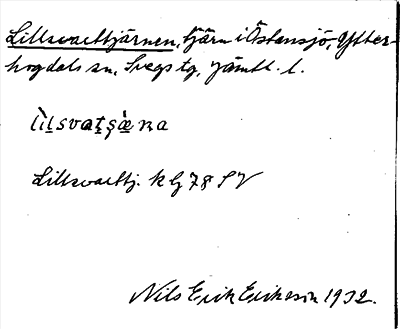 Lillsvarttjärnen, tjärn i Östansjö, Ytter-
hogdals sn, Svegs tg, Jämtl. l.
lìlsvaṯʂæ̀ṇa
Lillsvarttj. k G 78 SV
Nils Erik Erikson 1932.